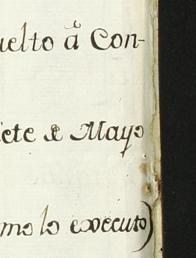 uelto â Con-
iete de Mayo
mo lo executo)